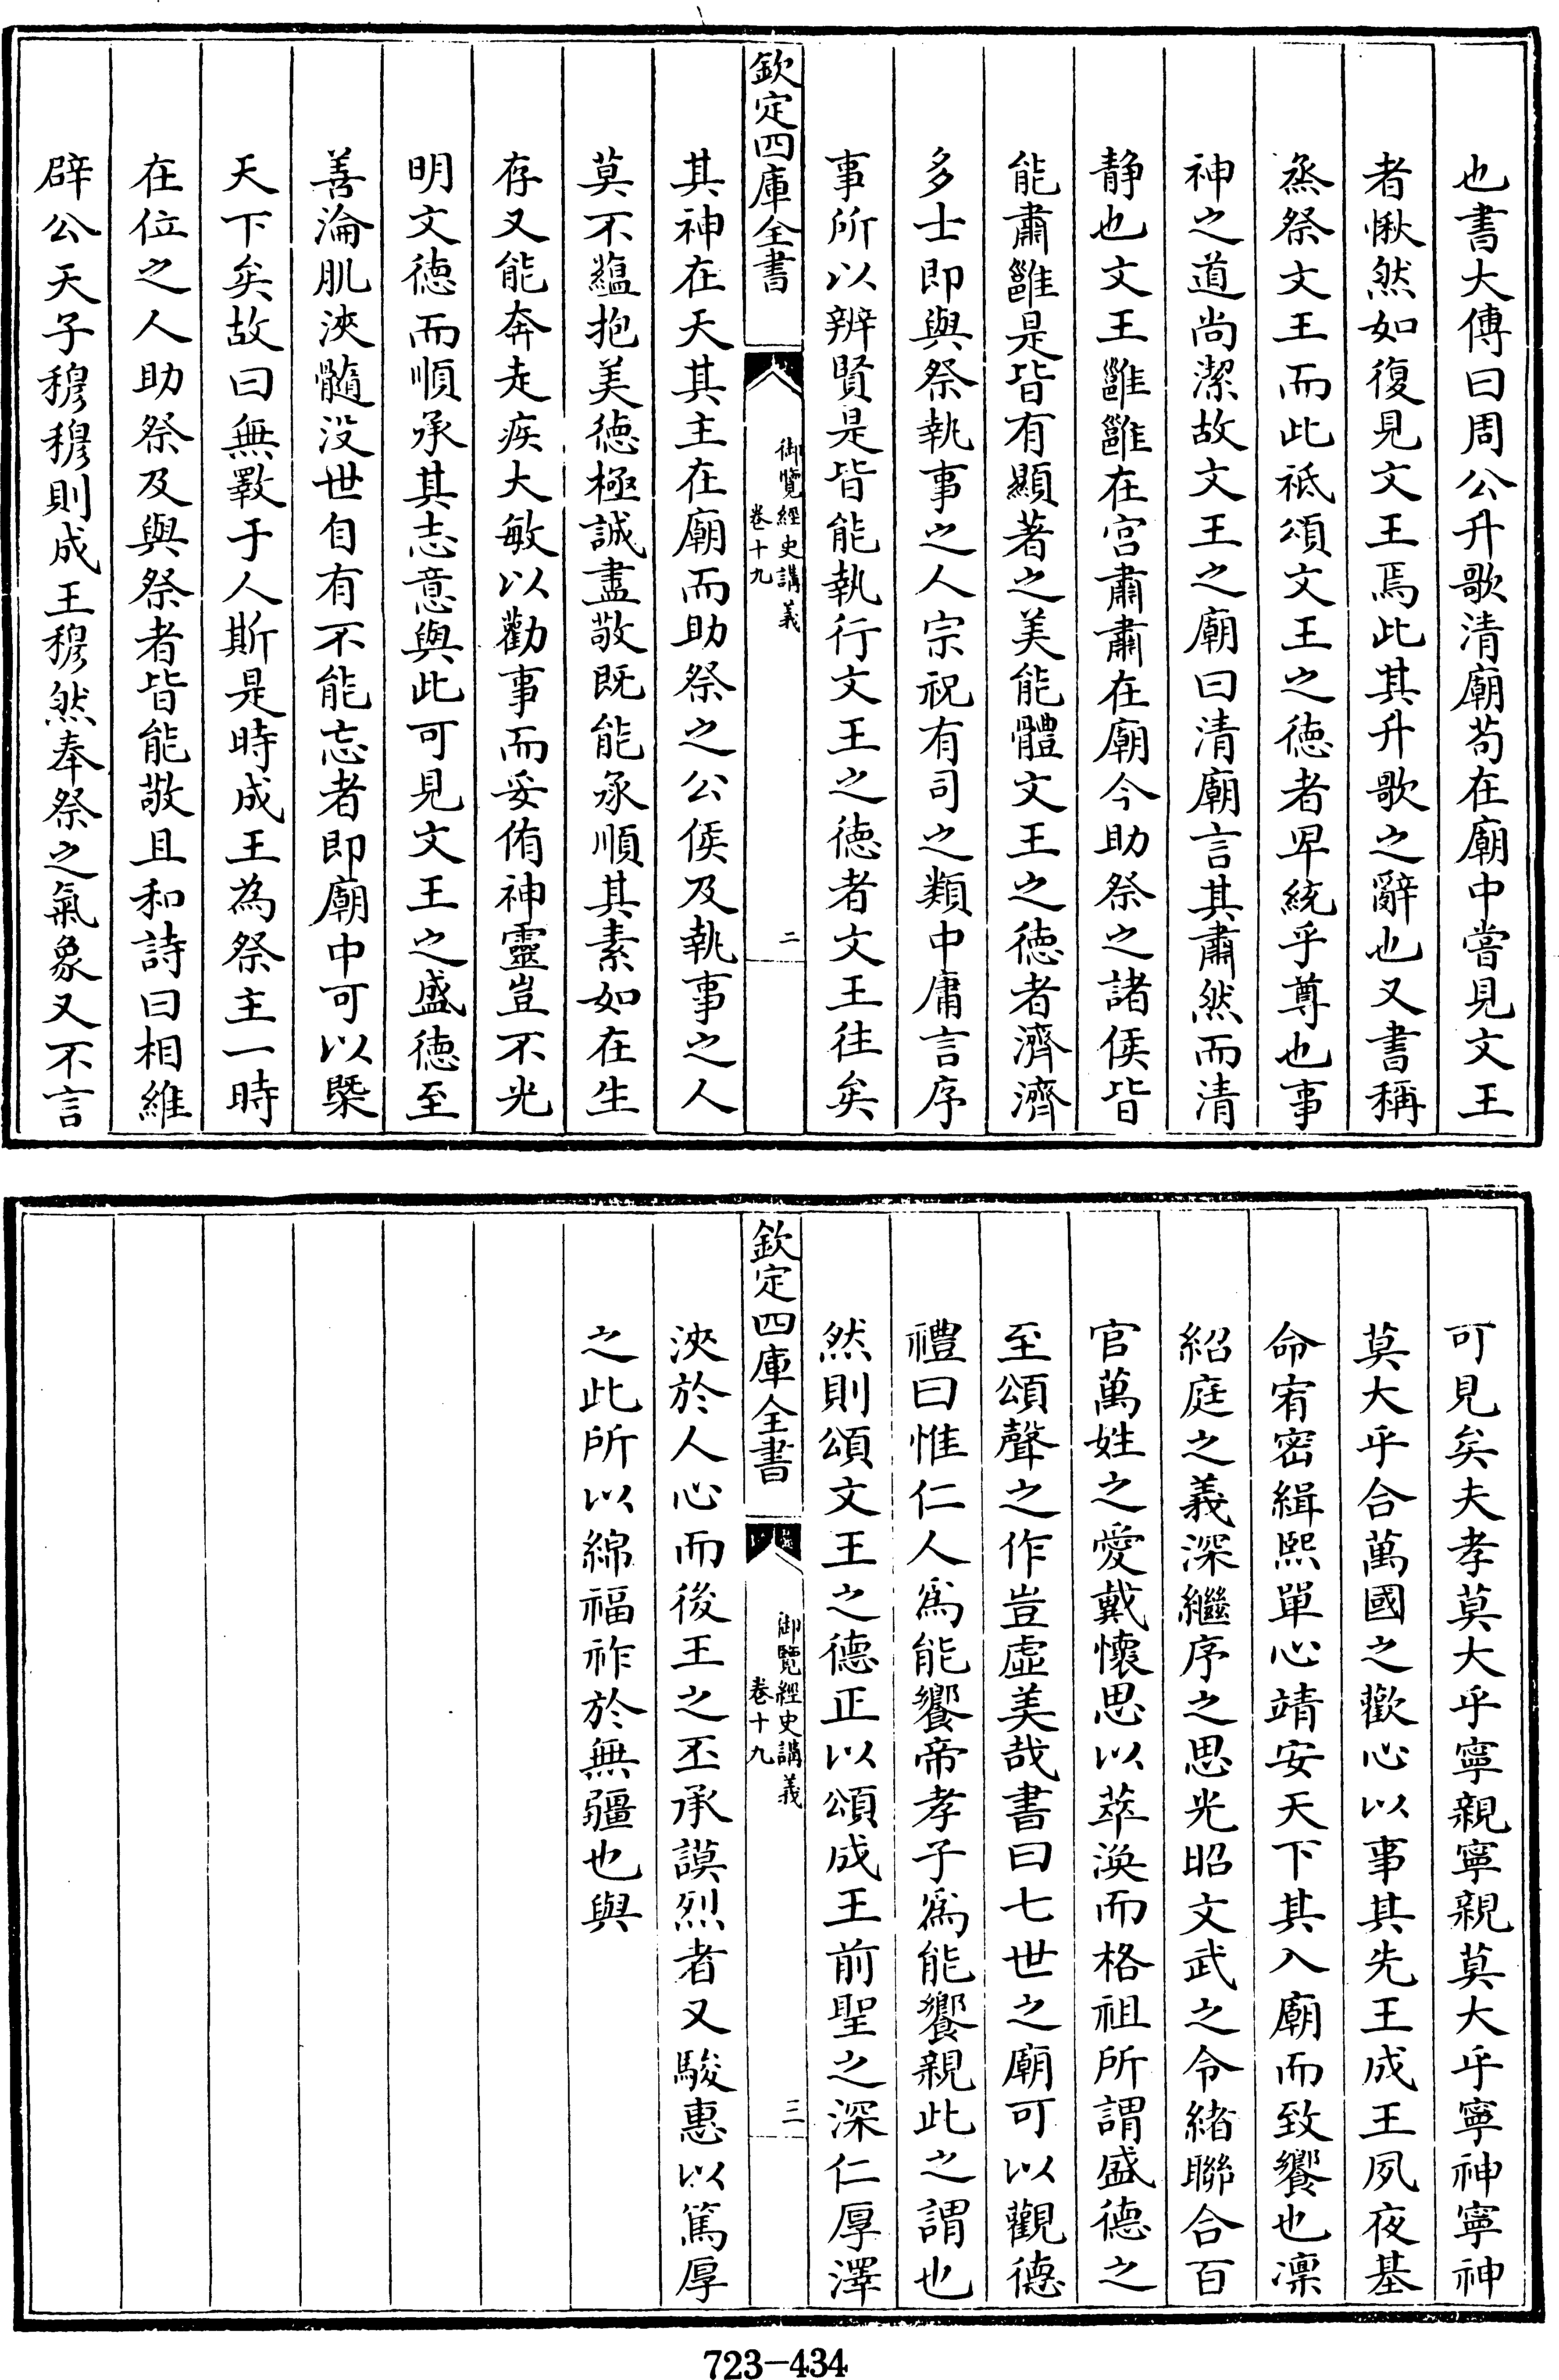 也書大傳曰周公升歌清廟苟在廟中嘗見文王
者愀然如復見文王焉此其升歌之辭也又書稱
烝祭文王而此祗頌文王之徳者卑統乎尊也事
神之道尚潔故文王之廟曰清廟言其肅然而清
静也文王雝雝在宫肅肅在廟今助祭之諸侯皆
能肅雝是皆有顯著之美能體文王之徳者濟濟
多士即與祭執事之人宗祝有司之類中庸言序
事所以辨賢是皆能執行文王之徳者文王往矣
欽定四庫全書
御覽經史講義
卷十九
二
其神在天其主在廟而助祭之公侯及執事之人
莫不蘊抱美徳極誠盡敬既能承順其素如在生
存又能奔走疾大敏以勸事而妥侑神靈豈不光
明文徳而順承其志意與此可見文王之盛徳至
善淪肌浹髓没世自有不能忘者即廟中可以槩
天下矣故曰無斁于人斯是時成王為祭主一時
在位之人助祭及與祭者皆能敬且和詩曰相維
辟公天子穆穆則成王穆然奉祭之氣象又不言
可見矣夫孝莫大乎寧親寧親莫大乎寧神寧神
莫大乎合萬國之歡心以事其先王成王夙夜基
命宥密緝熙單心靖安天下其入廟而致饗也凛
紹庭之義深繼序之思光昭文武之令緒聯合百
官萬姓之愛戴懐思以萃渙而格祖所謂盛德之
至頌聲之作豈虛美哉書曰七世之廟可以觀德
禮曰惟仁人爲能饗帝孝子爲能饗親此之謂也
然則頌文王之德正以頌成王前聖之深仁厚澤
欽定四庫全書
御覽經史講義
卷十九
三
浹於人心而後王之丕承謨烈者又駿惠以篤厚
之此所以綿福祚於無疆也與
723-434